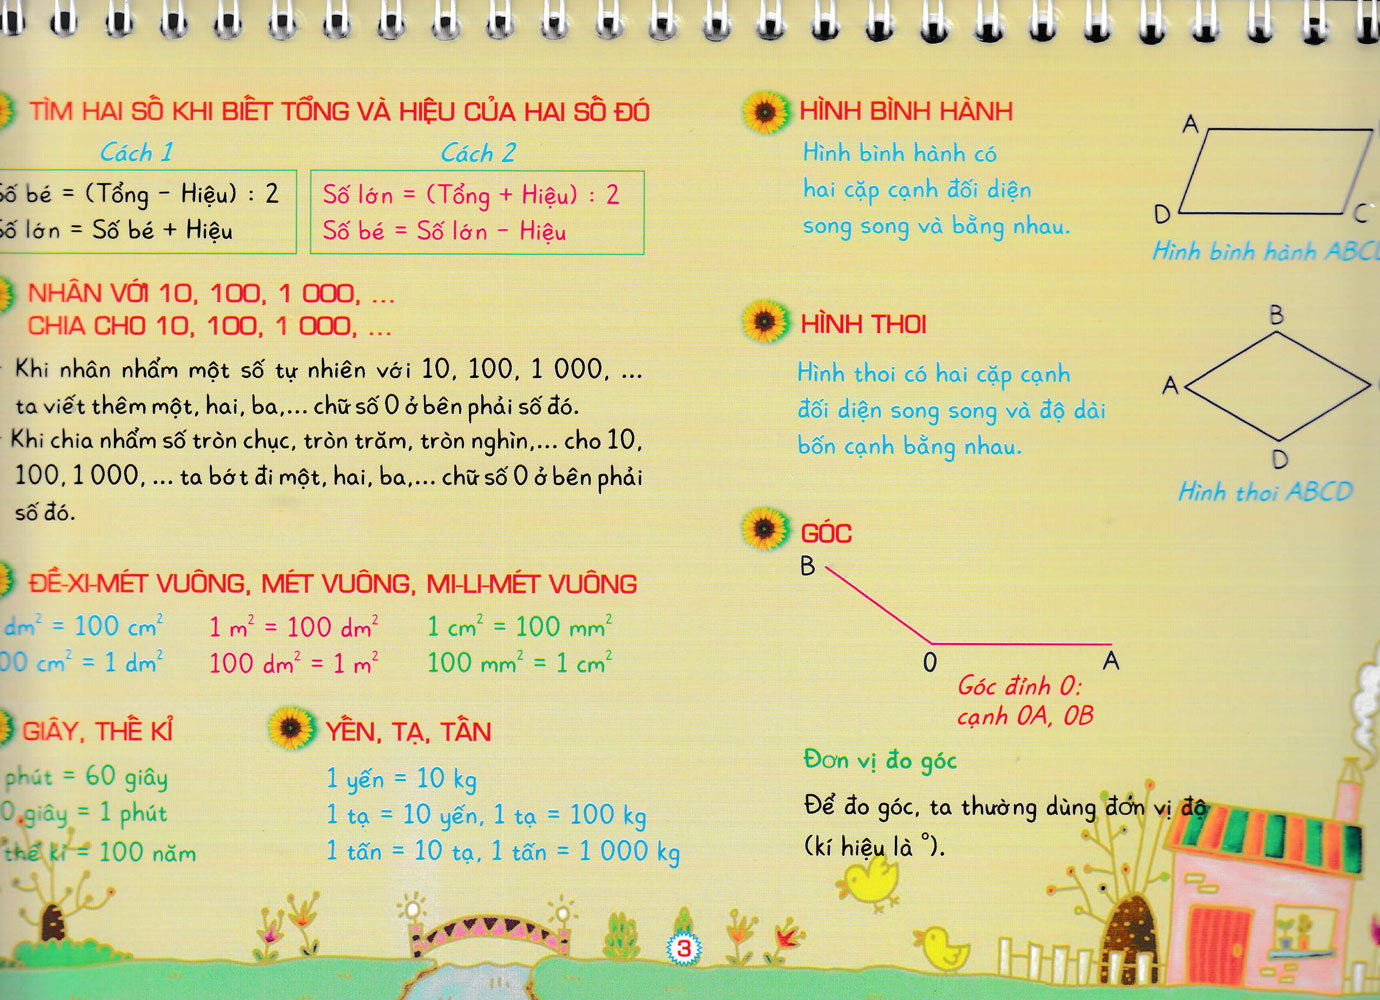 TÌM HAI SỐ KHI BIẾT TỔNG VÀ HIỆU CỦA HAI SỐ ĐÓ
Cách 1
Số bé = (Tổng - Hiệu) : 2
Số lớn = Số bé + Hiệu
Cách 2
Số lớn = (Tổng + Hiệu) : 2
Số bé = Số lớn - Hiệu
NHÂN VỚI 10, 100, 1 000, ...
CHIA CHO 10, 100, 1 000, ...
Khi nhân nhẩm một số tự nhiên với 10, 100, 1 000, ...
ta viết thêm một, hai, ba,... chữ số 0 ở bên phải số đó.
Khi chia nhẩm số tròn chục, tròn trăm, tròn nghìn,... cho 10,
100, 1 000, ... ta bớt đi một, hai, ba,... chữ số 0 ở bên phải
số đó.
ĐỀ-XI-MÉT VUÔNG, MÉT VUÔNG, MI-LI-MÉT VUÔNG
dm² = 100 cm²
00 cm² = 1 dm²
1 m² = 100 dm²
100 dm² = 1 m²
1 cm² = 100 mm²
100 mm² = 1 cm²
GIÂY, THẾ KỈ
phút = 60 giây
0 giây = 1 phút
thế kỉ = 100 năm
YẾN, TẠ, TẤN
1 yến = 10 kg
1 tạ = 10 yến, 1 tạ = 100 kg
1 tấn = 10 tạ, 1 tấn = 1 000 kg
HÌNH BÌNH HÀNH
Hình bình hành có
hai cặp cạnh đối diện
song song và bằng nhau.
A
D
C
Hình bình hành ABCD
HÌNH THOI
Hình thoi có hai cặp cạnh
đối diện song song và độ dài
bốn cạnh bằng nhau.
B
A
D
Hình thoi ABCD
GÓC
B
O
A
Góc đỉnh O:
cạnh OA, OB
Đơn vị đo góc
Để đo góc, ta thường dùng đơn vị độ
(kí hiệu là °).
3